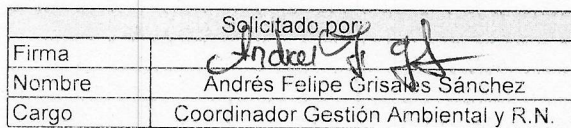 Solicitado por:
Firma
Nombre Andrés Felipe Grisales Sánchez
Cargo Coordinador Gestión Ambiental y R.N.